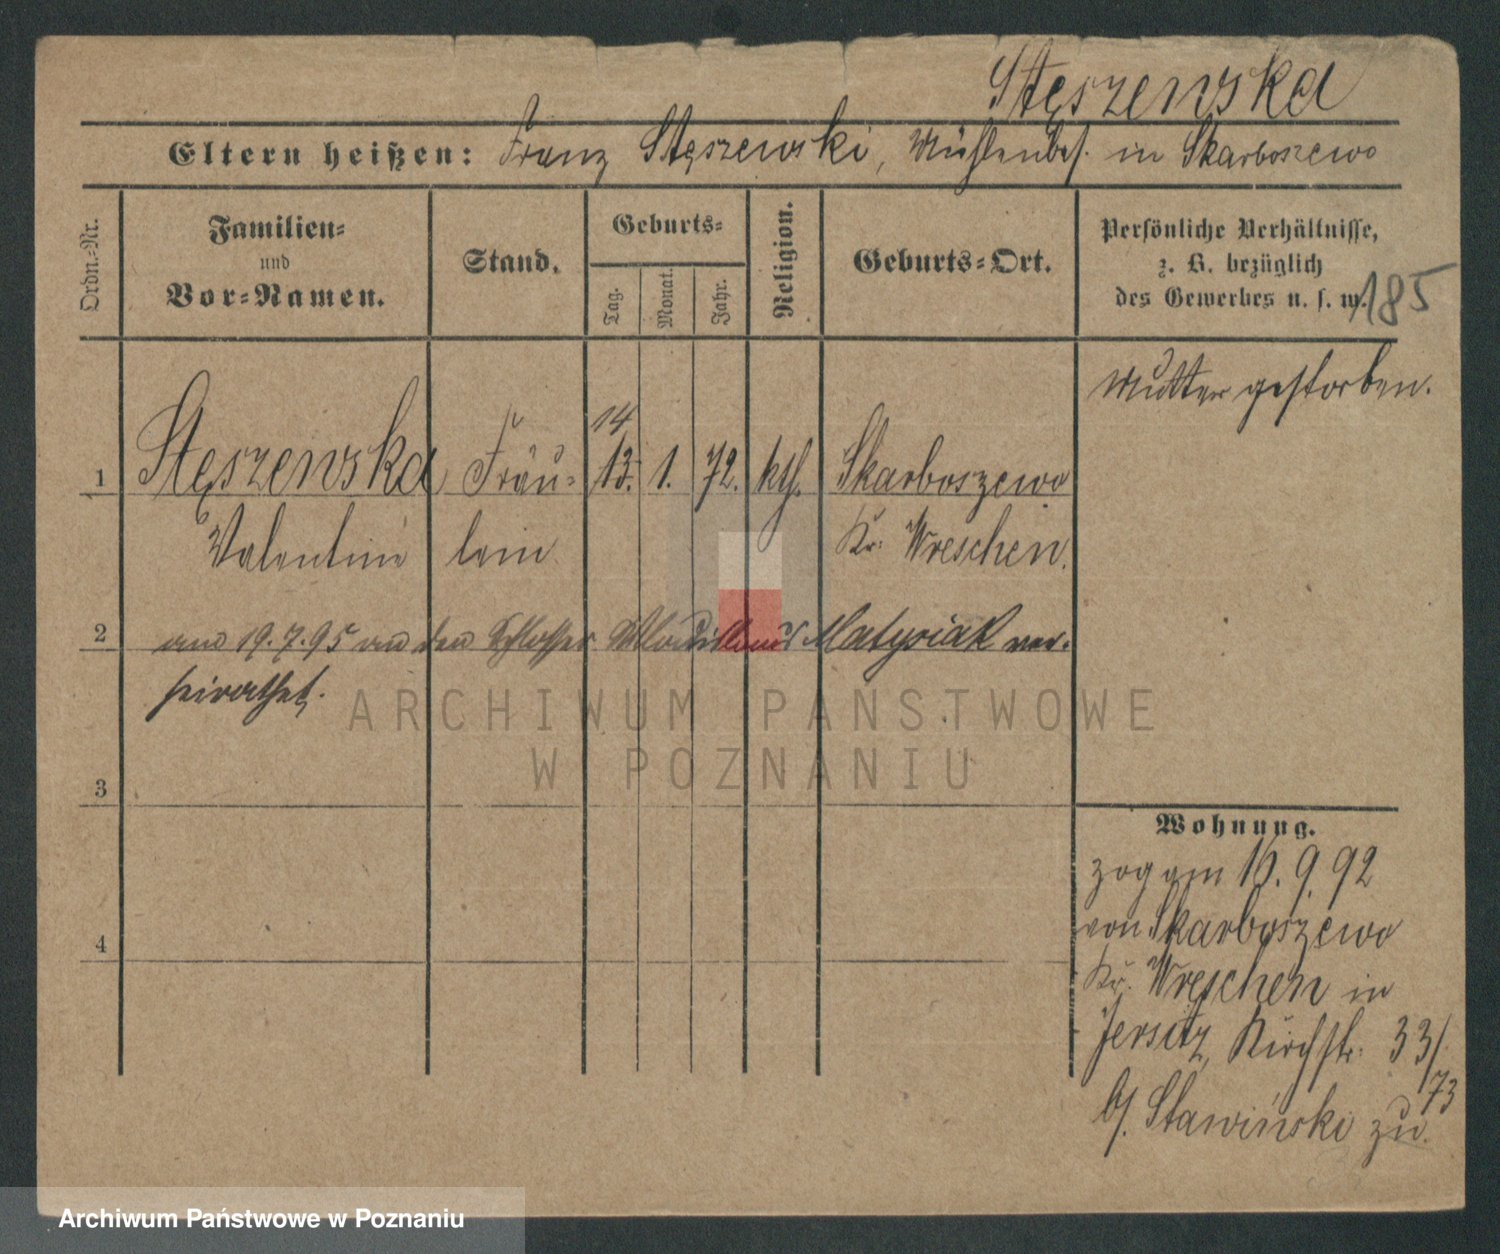 Stęszewska
Eltern heißen: Franz Stęszewski, Mühlenbes. in Skarboszewo
Ordn.-Nr.
Familien-
und
Vor-Namen.
Stand.
Geburts-
Tag.
Monat.
Jahr.
Religion.
Geburts-Ort.
Persönliche Verhältnisse,
z. B. bezüglich
des Gewerbes u. s. w.
185
Mutter gestorben.
14
1 Stęszewska Fräu- 13. 1. 72. kth. Skarboszewo
Valentine lein Kr. Wreschen.
2 am 19.7.95 an den Schlosser Wladislaus Matysiak ver-
heirathet.
3
4
Wohnung.
zog am 16.9.92
von Skarboszewo
Kr. Wreschen in
Jersitz, Kirchstr. 33/
73
b/. Stawiński zu.
ARCHIWUM PAŃSTWOWE
W POZNANIU
Archiwum Państwowe w Poznaniu